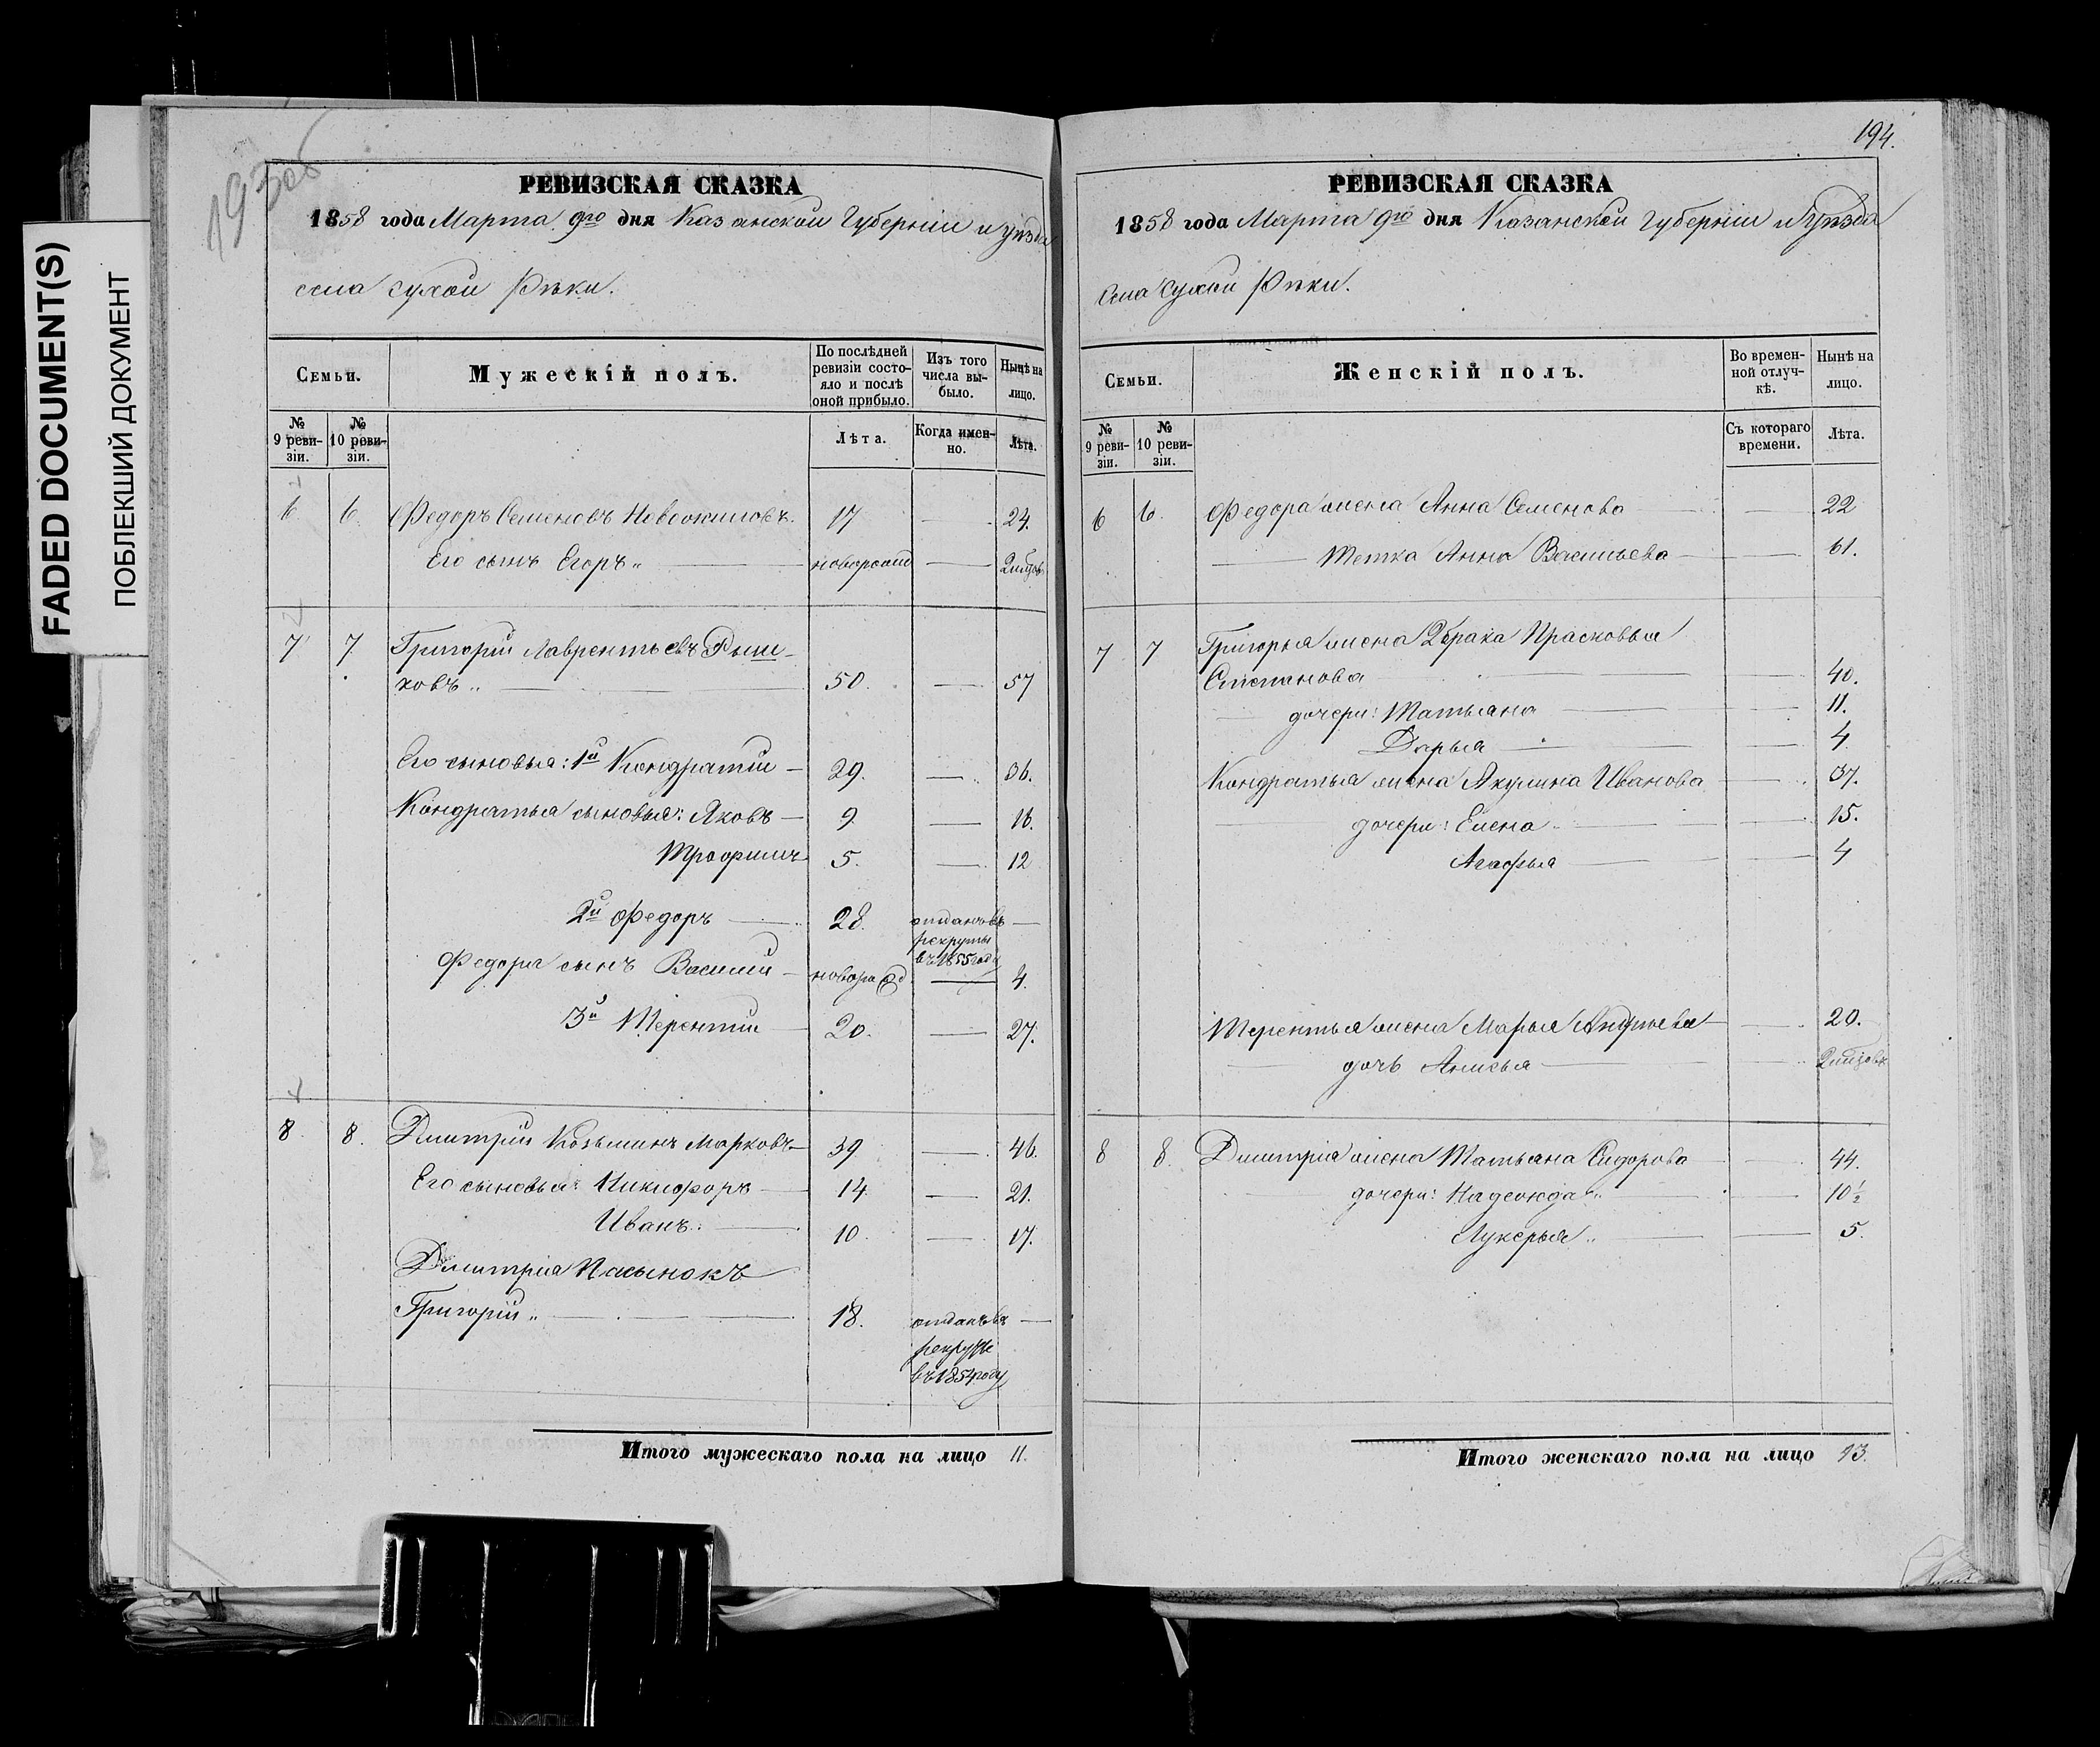 FADED DOCUMENT(S)
ПОБЛЕКШИЙ ДОКУМЕНТ
193об
РЕВИЗСКАЯ СКАЗКА
1858 года Марта 9го дня Казанской Губерніи и уѣзда
села Сухой Рѣки.
Семьи.
Мужескій полъ.
По послѣдней ревизіи состояло и послѣ оной прибыло.
Изъ того числа выбыло.
Нынѣ на лицо.
№ 9 ревизіи.
№ 10 ревизіи.
Лѣта.
Когда именно.
Лѣта.
6 6. Федоръ Семеновъ 17 — 24.
Его сынъ Егоръ „ — новорожд —
7 7 Григорій Лаврентьевъ Рыш-
ковъ „ — 50. — 57
Его сыновья: 1й Кондратій — 29. — 36.
Кондратья сыновья: Яковъ — 9. — 16.
Трофимъ 5. — 12
2й Федоръ — 28. отданъ въ —
рекруты
въ 1855 году
Федора сынъ Василий — новорожд — 4.
3й Терентій — 20. — 27.
8. 8. Дмитрій Козьминъ Марковъ — 39 — 46.
Его сыновья: Никифоръ — 14 — 21.
Иванъ. — 10 — 17.
Дмитрія Пасынокъ
Григорій „ — 18. отданъ въ —
рекруты
въ 1854 году
Итого мужескаго пола на лицо 11.
194.
РЕВИЗСКАЯ СКАЗКА
1858 года Марта 9го дня Казанской Губерніи и уѣзда
Села Сухой Рѣки.
Семьи.
Женскій полъ.
Во временной отлучкѣ.
Нынѣ на лицо.
№ 9 ревизіи.
№ 10 ревизіи.
Съ котораго времени.
Лѣта.
6 6. Федора жена Анна Семенова — 22
— Тетка Анна Васильева — 61.
7 7 Григорья жена 2 брака Прасковья
Степанова — 40.
дочери: Татьяна — 11.
Дарья — 4.
Кондратья жена Акулина Иванова — 37.
дочери: Елена — 15.
Агафья — 4
Терентья жена Марья Андреева — 20.
дочь Анисья —
8 8. Дмитрія жена Татьяна Сидорова — 44.
дочери: Надежда „ — 10 1/2
Лукерья „ — 5.
Итого женскаго пола на лицо 13.